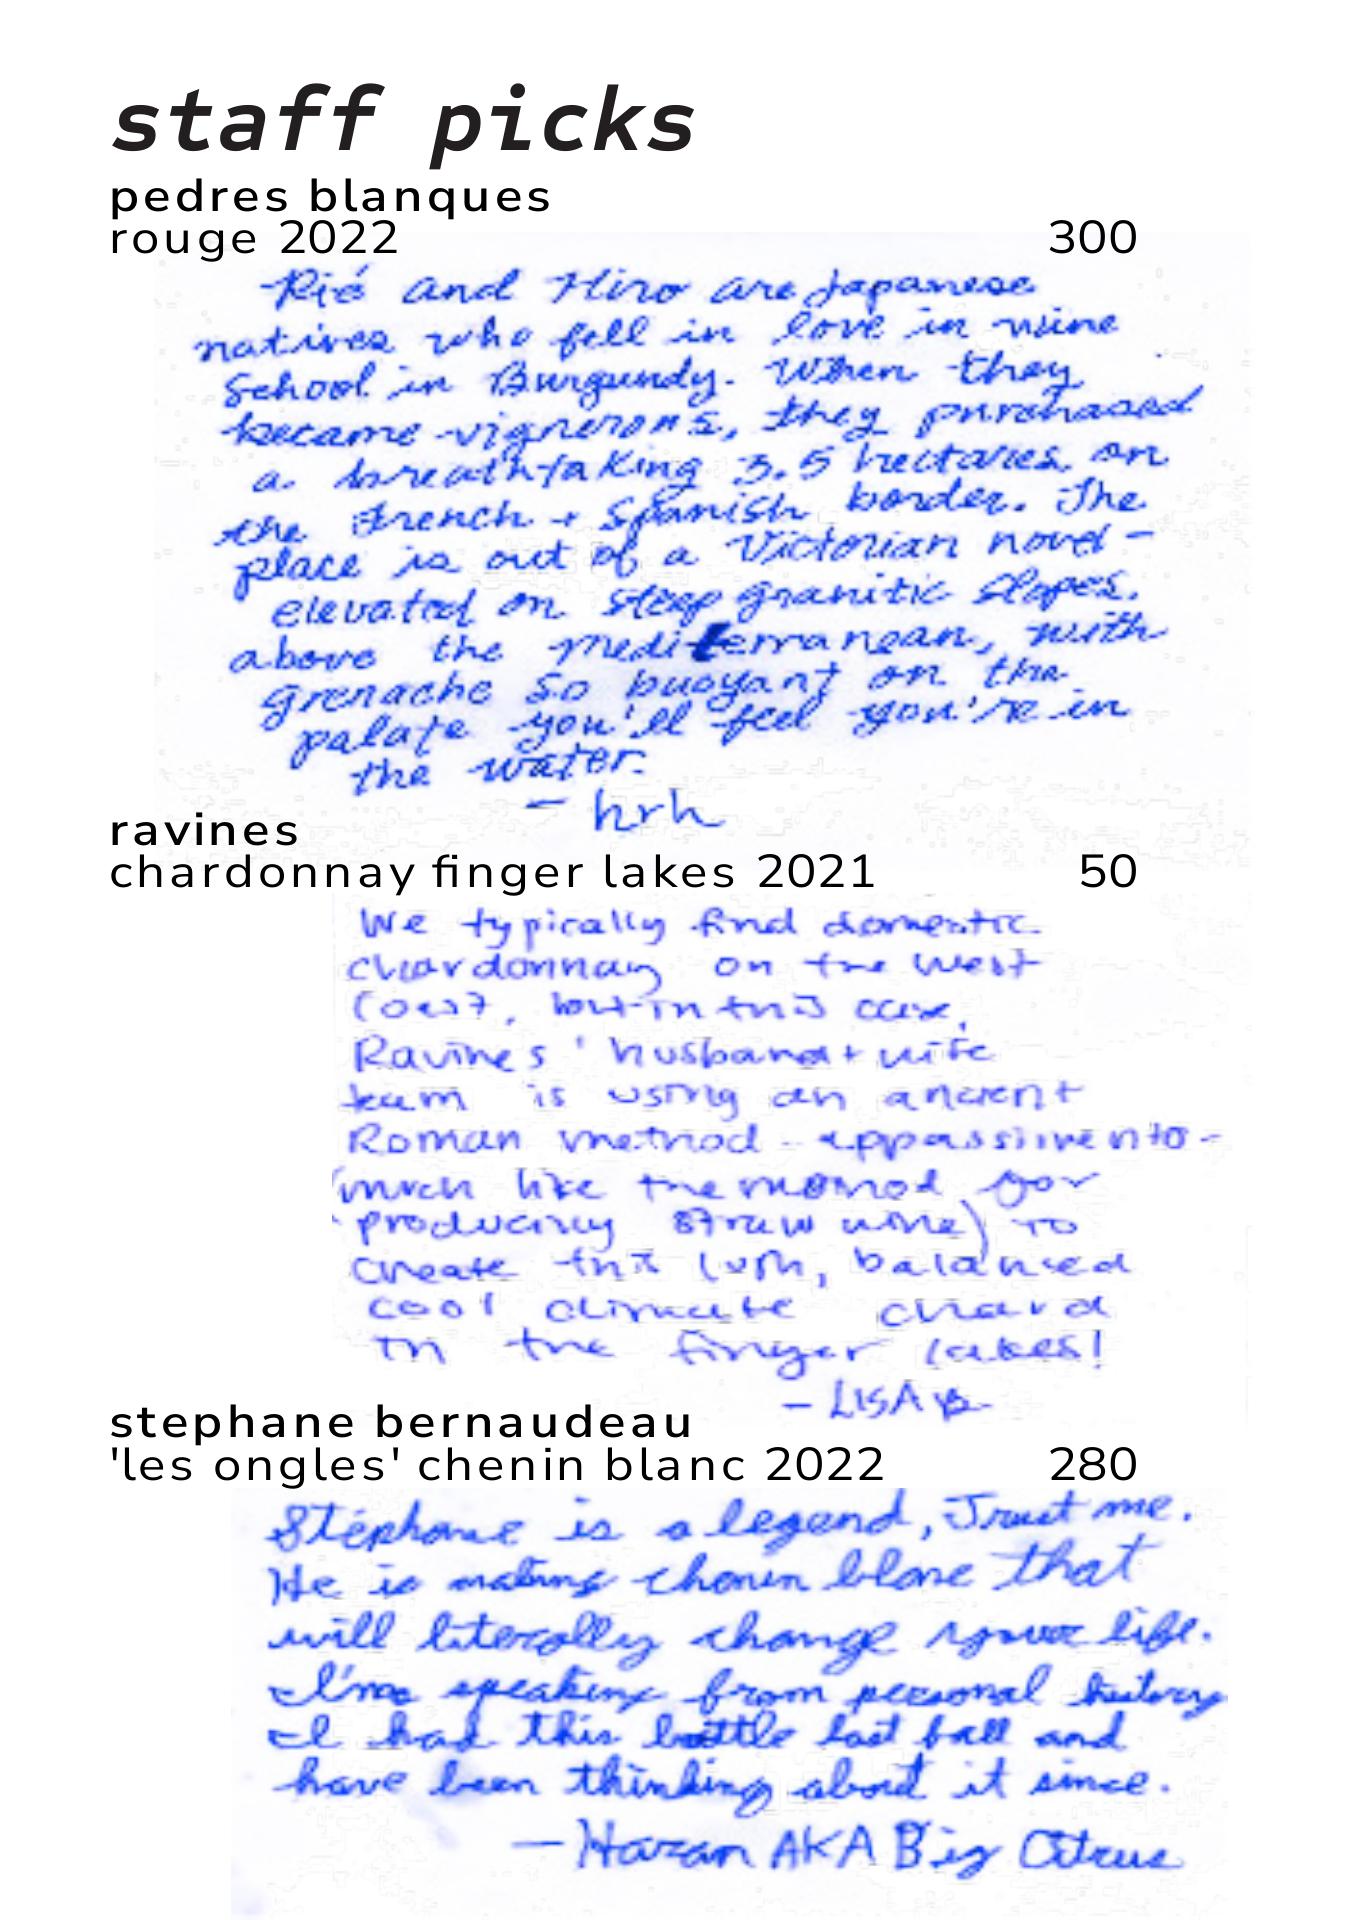 staff picks
pedres blanques
rouge 2022 300
Rié and Hiro are Japanese
natives who fell in love in wine
School in Burgundy. When they
became vignerons, they purchased
a breathtaking 3.5 hectares on
the French + Spanish border. The
place is out of a Victorian novel -
elevated on steep granitic slopes.
above the mediterranean, with
grenache so buoyant on the
palate you'll feel you're in
the water.
- hrh
ravines
chardonnay finger lakes 2021 50
We typically find domestic
chardonnay on the West
Coast, but in this case,
Ravines' husband + wife
team is using an ancient
Roman method - appassimento -
(much like the method for
producing straw wine) to
create this lush, balanced
cool climate chard
in the finger lakes!
- LISA B
stephane bernaudeau
'les ongles' chenin blanc 2022 280
Stéphane is a legend, Trust me.
He is making chenin blanc that
will literally change your life.
I'm speaking from personal history
I had this bottle last fall and
have been thinking about it since.
- Hazan AKA Big Citrus